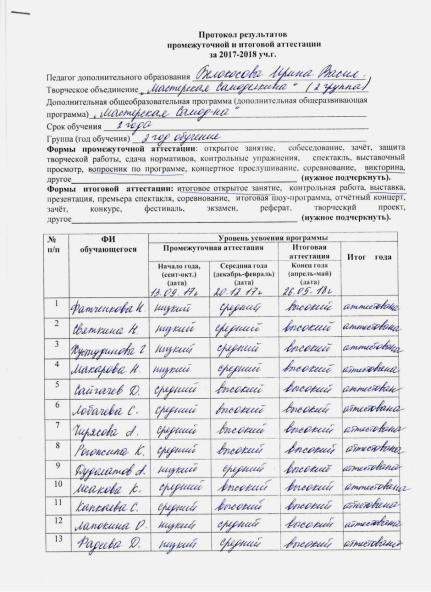 Протокол результатов
промежуточной и итоговой аттестации
за 2017-2018 уч.г.
Педагог дополнительного образования Белокосова Ирина Васил.
Творческое объединение „Мастерская Самоделкина" (2 группа)
Дополнительная общеобразовательная программа (дополнительная общеразвивающая
программа) „Мастерская Самоделкина"
Срок обучения 2 года
Группа (год обучения) 2 год обучение
Формы промежуточной аттестации: открытое занятие, собеседование, зачёт, защита
творческой работы, сдача нормативов, контрольные упражнения, спектакль, выставочный
просмотр, вопросник по программе, концертное прослушивание, соревнование, викторина,
другое (нужное подчеркнуть).
Формы итоговой аттестации: итоговое открытое занятие, контрольная работа, выставка,
презентация, премьера спектакля, соревнование, итоговая шоу-программа, отчётный концерт,
зачёт, конкурс, фестиваль, экзамен, реферат, творческий проект,
другое (нужное подчеркнуть).
№ п/п ФИ обучающегося Уровень усвоения программы Итог года
Промежуточная аттестация Итоговая аттестация
Начало года, (сент-окт.) (дата) Середина года (декабрь-февраль) (дата) Конец года (апрель-май) (дата)
13.09.17г 20.12.17г 26.05.18г
1 Фатченкова Н. низкий средний высокий аттестована
2 Святкина Н. низкий средний высокий аттестована
3 низкий средний высокий аттестована
4 Макарова Н. низкий средний высокий аттестована
5 Сайгачев Д. средний высокий высокий аттестован
6 Лобачева С. средний высокий высокий аттестована
7 Чирясова А. средний высокий высокий аттестована
8 Рогожина К. средний высокий высокий аттестована
9 низкий средний высокий аттестован
10 Исакова К. средний высокий высокий аттестована
11 С. средний высокий высокий аттестована
12 Лапокина О. низкий средний высокий аттестована
13 Фадеева D. низкий средний высокий аттестована